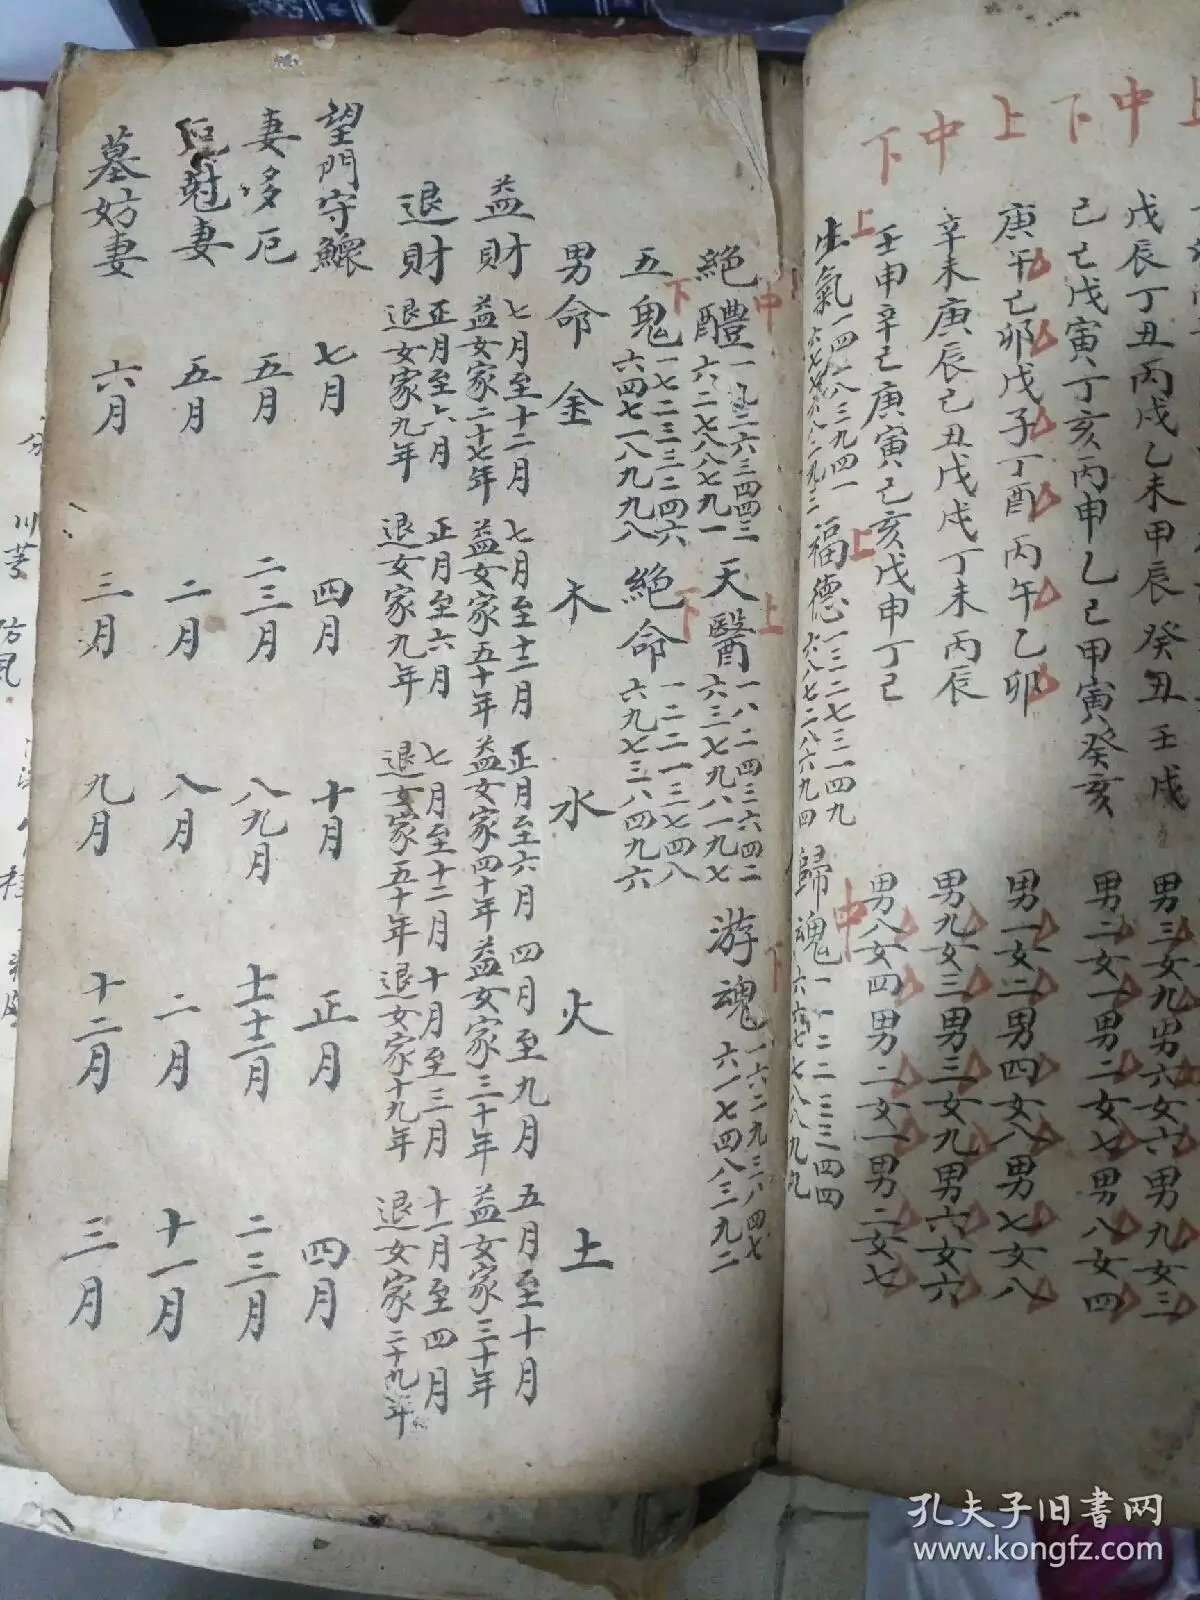 上 中 下 上 中 下
戊辰丁丑丙戌乙未甲辰癸丑壬戌
男三女九男六女六男九女三
己巳戊寅丁亥丙申乙巳甲寅癸亥
男二女一男二女七男八女四
庚午己卯戊子丁酉丙午乙卯
男一女二男四女八男七女八
辛未庚辰己丑戊戌丁未丙辰
男九女三男三女九男六女六
壬申辛巳庚寅己亥戊申丁巳
男八女四男二女一男二女七
上 生氣 一四二八三九四一
上 福德 一三二七三一四九
六八七二八六九四
中 歸魂 一一二二三三四四
六六七七八八九九
中 絕體 一九二六三四四三
六二七八八七九一
上 天醫 一八二四三六四二
六三七九八一九七
下 游魂 一六二九三八四七
六一七四八三九二
下 五鬼 一七二三三二四六
六四七一八九九八
下 絕命 一二二一三七四八
六九七三八四九六
男命 金 木 水 火 土
益財
七月至十二月 益女家二十七年
七月至十二月 益女家五十年
正月至六月 益女家四十年
四月至九月 益女家三十年
五月至十月 益女家三十年
退財
正月至六月 退女家九年
正月至六月 退女家九年
七月至十二月 退女家五十年
十月至三月 退女家十九年
十一月至四月 退女家二十九年
望門守鰥 七月 四月 十月 正月 四月
妻多厄 五月 二三月 八九月 十一十二月 二三月
妻 五月 二月 八月 二月 十一月
墓妨妻 六月 三月 九月 十二月 三月
川芎 防風
孔夫子旧書网
www.kongfz.com